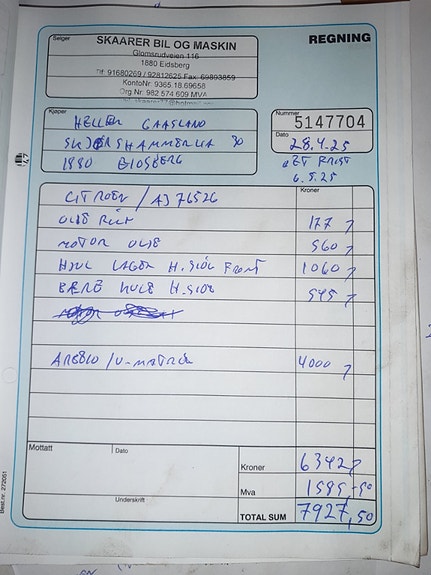 Selger
SKAARER BIL OG MASKIN
Glomsrudveien 116
1880 Eidsberg
Tlf: 91680269 / 92812625 Fax: 69893859
KontoNr: 9365.18.69658
Org Nr: 982 574 609 MVA
REGNING
Kjøper
HELLEN GAASLAND
30
1880 EIDSBERG
Nummer
5147704
Dato
28.4.25
BET FRIST
6.5.25
Kroner
CITROEN / AJ 76526
OLJE FILT 177,
MOTOR OLJE 560,
HJUL LAGER H. SIDE FRONT 1060,
BÆRE KULE H. SIDE 545,
ARBEID / V-MATRIELL 4000,
Mottatt
Dato
Underskrift
Kroner 6342,
Mva 1585,50
TOTAL SUM 7927,50
Best.nr. 272051